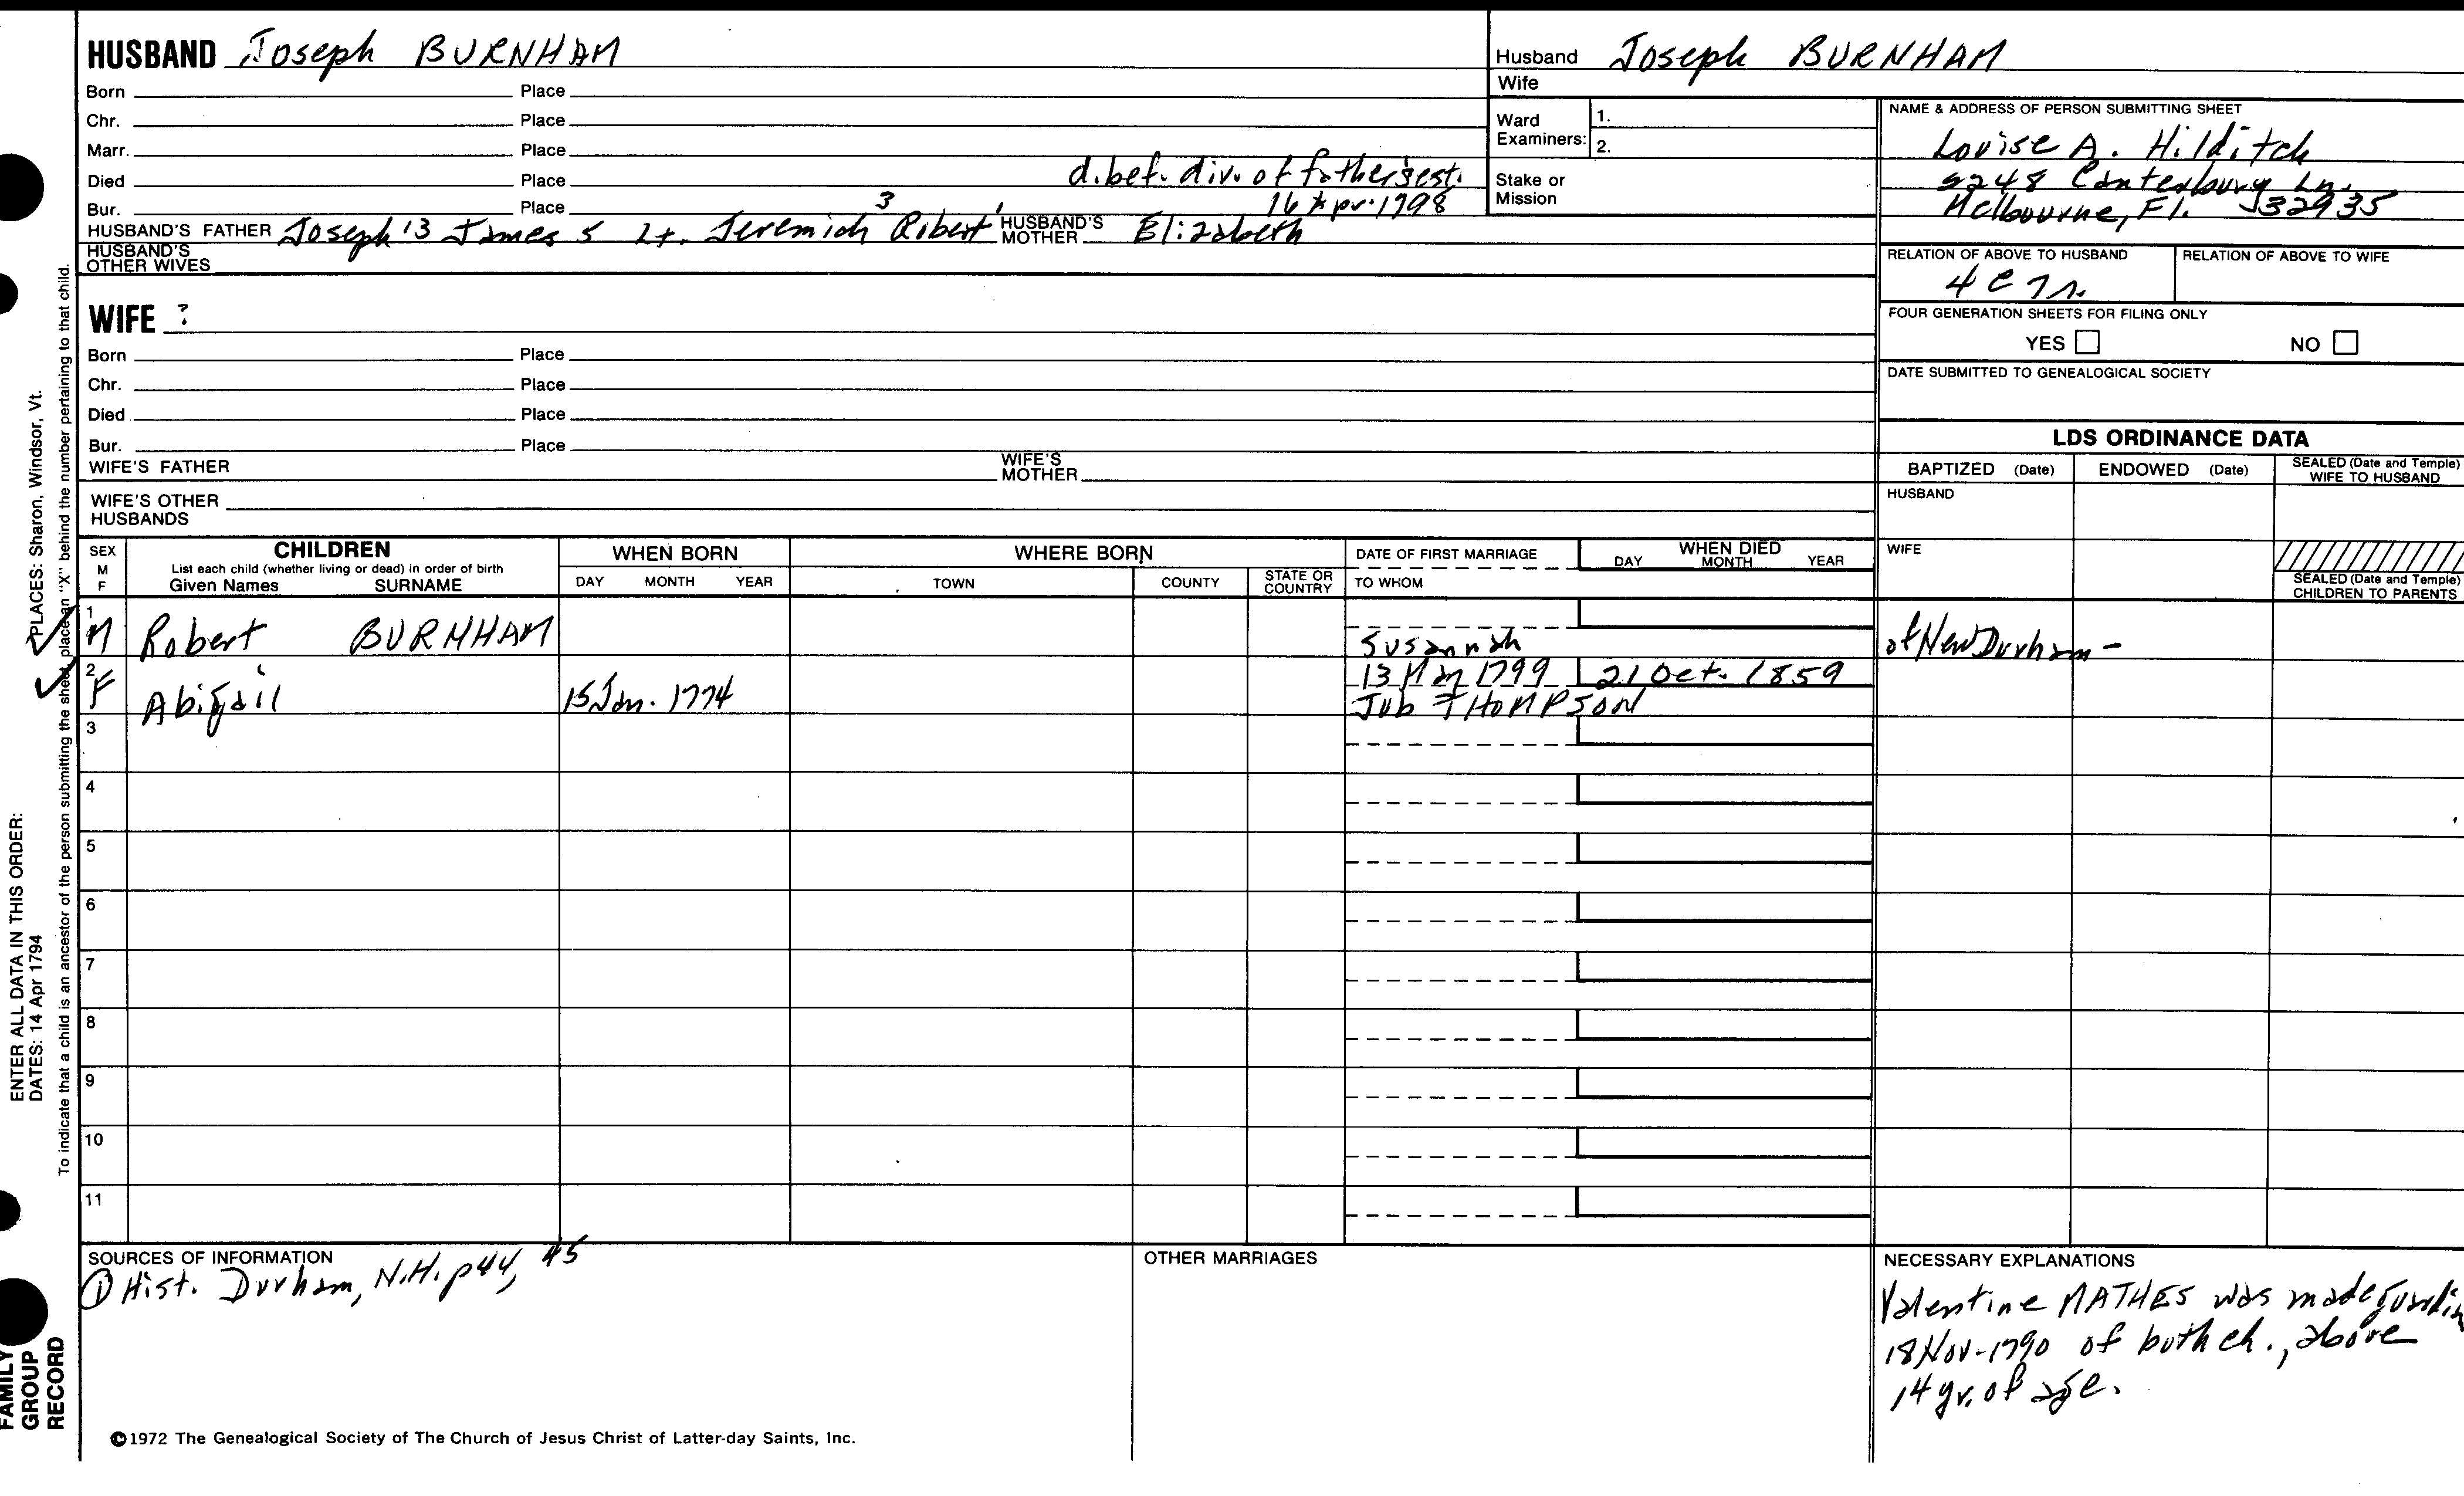 HUSBAND Joseph BURNHAM
Born Place
Chr. Place
Marr. Place
Died Place d. bef. div. of father's est.
Bur. Place 16 Apr. 1798
HUSBAND'S FATHER Joseph 13 James 5 Lt. Jeremiah 3 Robert 1 HUSBAND'S MOTHER Elizabeth
HUSBAND'S OTHER WIVES
WIFE ?
Born Place
Chr. Place
Died Place
Bur. Place
WIFE'S FATHER WIFE'S MOTHER
WIFE'S OTHER HUSBANDS
Husband Joseph BURNHAM
Wife
Ward Examiners: 1.
2.
Stake or Mission
NAME & ADDRESS OF PERSON SUBMITTING SHEET
Louise A. Hilditch
Canterbury Ln.
Melbourne, Fl. 32935
RELATION OF ABOVE TO HUSBAND RELATION OF ABOVE TO WIFE
FOUR GENERATION SHEETS FOR FILING ONLY
YES NO
DATE SUBMITTED TO GENEALOGICAL SOCIETY
LDS ORDINANCE DATA
BAPTIZED (Date) ENDOWED (Date) SEALED (Date and Temple) WIFE TO HUSBAND
HUSBAND
WIFE
SEALED (Date and Temple) CHILDREN TO PARENTS
SEX M F
CHILDREN
List each child (whether living or dead) in order of birth
Given Names SURNAME
WHEN BORN
DAY MONTH YEAR
WHERE BORN
TOWN COUNTY STATE OR COUNTRY
DATE OF FIRST MARRIAGE
TO WHOM
WHEN DIED
DAY MONTH YEAR
1 M Robert BURNHAM Susannah of New Durham -
2 F Abigail 15 Jan. 1774 13 May 1799 21 Oct. 1859
Job THOMPSON
3
4
5
6
7
8
9
10
11
SOURCES OF INFORMATION
① Hist. Durham, N.H. p 44, 45
OTHER MARRIAGES
NECESSARY EXPLANATIONS
Valentine MATHES was made
18 Nov-1790 of both ch., above
14 yr. of age.
©1972 The Genealogical Society of The Church of Jesus Christ of Latter-day Saints, Inc.
ENTER ALL DATA IN THIS ORDER:
DATES: 14 Apr 1794 PLACES: Sharon, Windsor, Vt.
To indicate that a child is an ancestor of the person submitting the sheet, place an "X" behind the number pertaining to that child.
FAMILY
GROUP
RECORD